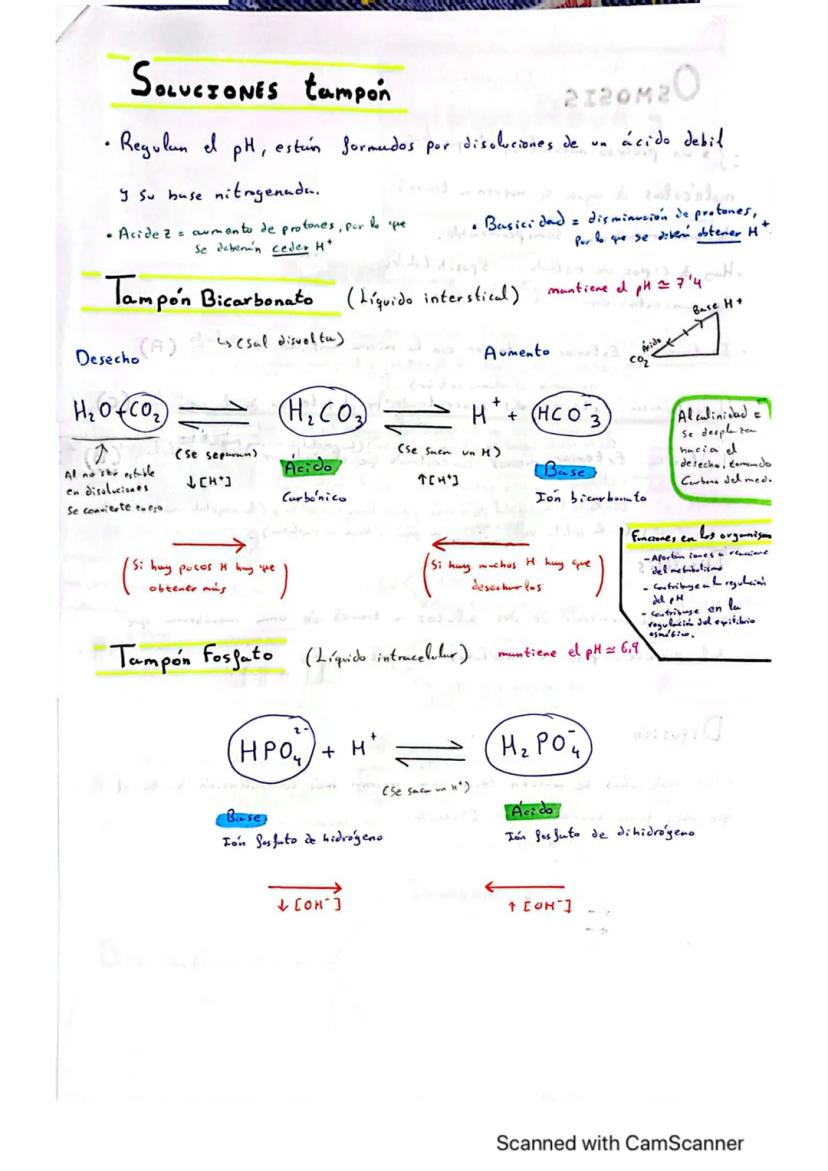 SOLUCIONES tampón
• Regulan el pH, están formados por disoluciones de un ácido debil
y su base nitrogenada.
• Acidez = aumento de protones, por lo que
se deberán ceder H⁺
• Basicidad = disminución de protones,
por lo que se deben obtener H⁺
Tampón Bicarbonato (Líquido interstical) mantiene el pH ≃ 7'4
↳ (sal disuelta)
Base H⁺
Ácido
CO₂
Desecho
Aumento
H₂O + CO₂ ⇌ H₂CO₃ ⇌ H⁺ + HCO₃⁻
(Se separan)
(Se saca un H)
↓[H⁺]
↑[H⁺]
Al no ser estable
en disoluciones
se convierte en eso
Ácido
Carbónico
Base
Ión bicarbonato
Alcalinidad =
se desplaza
hacia el
desecho, tomando
Carbono del med.
(Si hay pocos H hay que
obtener más)
(Si hay muchos H hay que
desecharlos)
Funciones en los organism
- Aportan iones a reaccione
del metabolismo
- Contribuye a la regulación
del pH
- Contribuye en la
regulación del equilibrio
osmótico.
Tampón Fosfato (Líquido intracelular) mantiene el pH ≃ 6,9
HPO₄²⁻ + H⁺ ⇌ H₂PO₄⁻
(Se saca un H⁺)
Base
Ión fosfato de hidrógeno
Ácido
Ión fosfato de dihidrógeno
↓ [OH⁻]
↑ [OH⁻]
Scanned with CamScanner